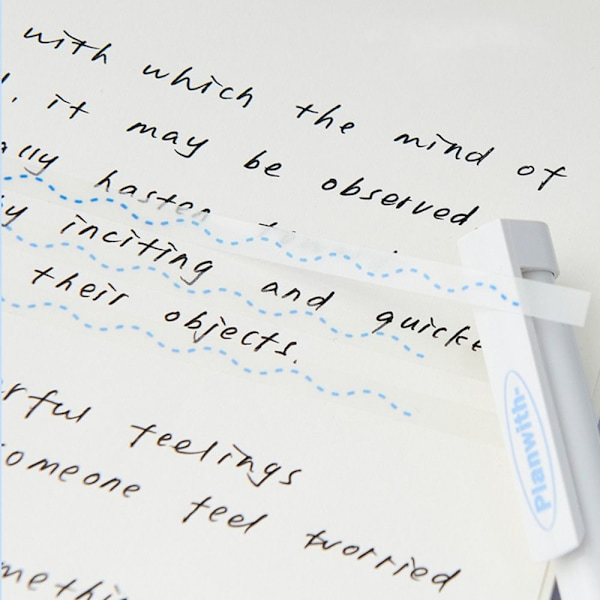 with which the mind of
it may be observed
hasten
inciting and
their objects.
feelings
someone feel worried
Planwith-